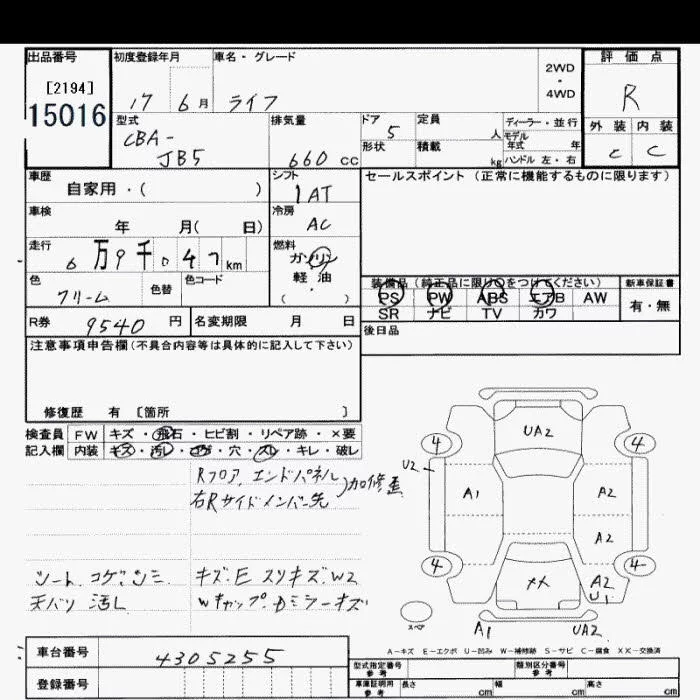 出品番号 初度登録年月 車名・グレード 2WD・4WD 評価点
[2194]
15016
17 6月 ライフ R
型式 排気量 ドア 定員 ディーラー・並行 外装 内装
CBA- 5 人 モデル年式 年
JB5 660 cc 形状 積載 kg ハンドル 左・右 C C
車歴 シフト セールスポイント(正常に機能するものに限ります)
自家用・( ) IAT
車検 冷房
年 月( 日) AC
走行 燃料
6万9千047km ガソリン
色 色替 色コード 軽・油
クリーム (・)
装備品(純正品に限り○をつけてください) 新車保証書
PS PW ABS エアB AW 有・無
SR ナビ TV カワ
R券 9540円 名変期限 月 日 後日品
注意事項申告欄(不具合内容等は具体的に記入して下さい)
修復歴 有 〔箇所 〕
検査員 FW キズ・飛石・ヒビ割・リペア跡・×要
記入欄 内装 キズ・汚レ・コゲ・穴・スレ・キレ・破レ
Rフロア、エンドパネル
右Rサイドメンバー先 )加修歴
シート コゲ、シミ キズ.E スリキズ.W2
天バリ 汚レ Wキャップ.Dミラーキズ
UA2
4 4
U2
A1 A2
A2
4 4
XX A2
U1
スペア
A1 UA2
A−キズ E−エクボ U−凹み W−補修跡 S−サビ C−腐食 XX−交換済
車台番号 4305255
登録番号
型式指定番号 参考 類別区分番号 参考
車庫証明用 参考 長さ cm 幅 cm 高さ cm